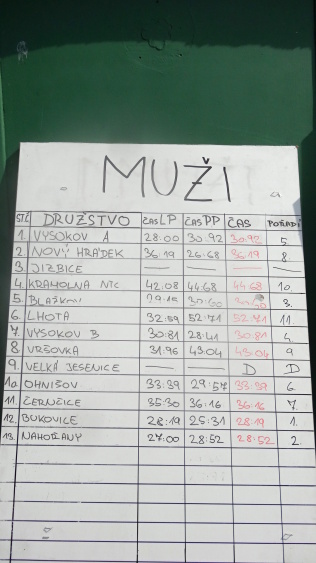 MUŽI
ST.Č. DRUŽSTVO ČAS LP ČAS PP ČAS POŘADÍ
1. VYSOKOV A 28:00 30:92 30:92 5.
2. NOVÝ HRÁDEK 36:19 26:68 36:19 8.
3. JIZBICE — — —
4. KRAMOLNA NTC 42:08 44:68 44:68 10.
5. BLAŽKOV 3.
6. LHOTA 32:59 52:71 52:71 11
7. VYSOKOV B 30:81 28:41 30:81 4.
8 VRŠOVKA 31:96 43:04 43:04 9
9. VELKÁ JESENICE — — D D
10. OHNIŠOV 33:39 29:57 33:39 6.
11. ČERNČICE 35:30 36:16 36:16 7.
12. BUKOVICE 28:19 25:31 28:19 1.
13. NAHOŘANY 27:00 28:52 28:52 2.